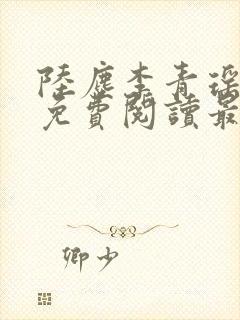 陸塵李青瑤
免費閱讀最
卿少